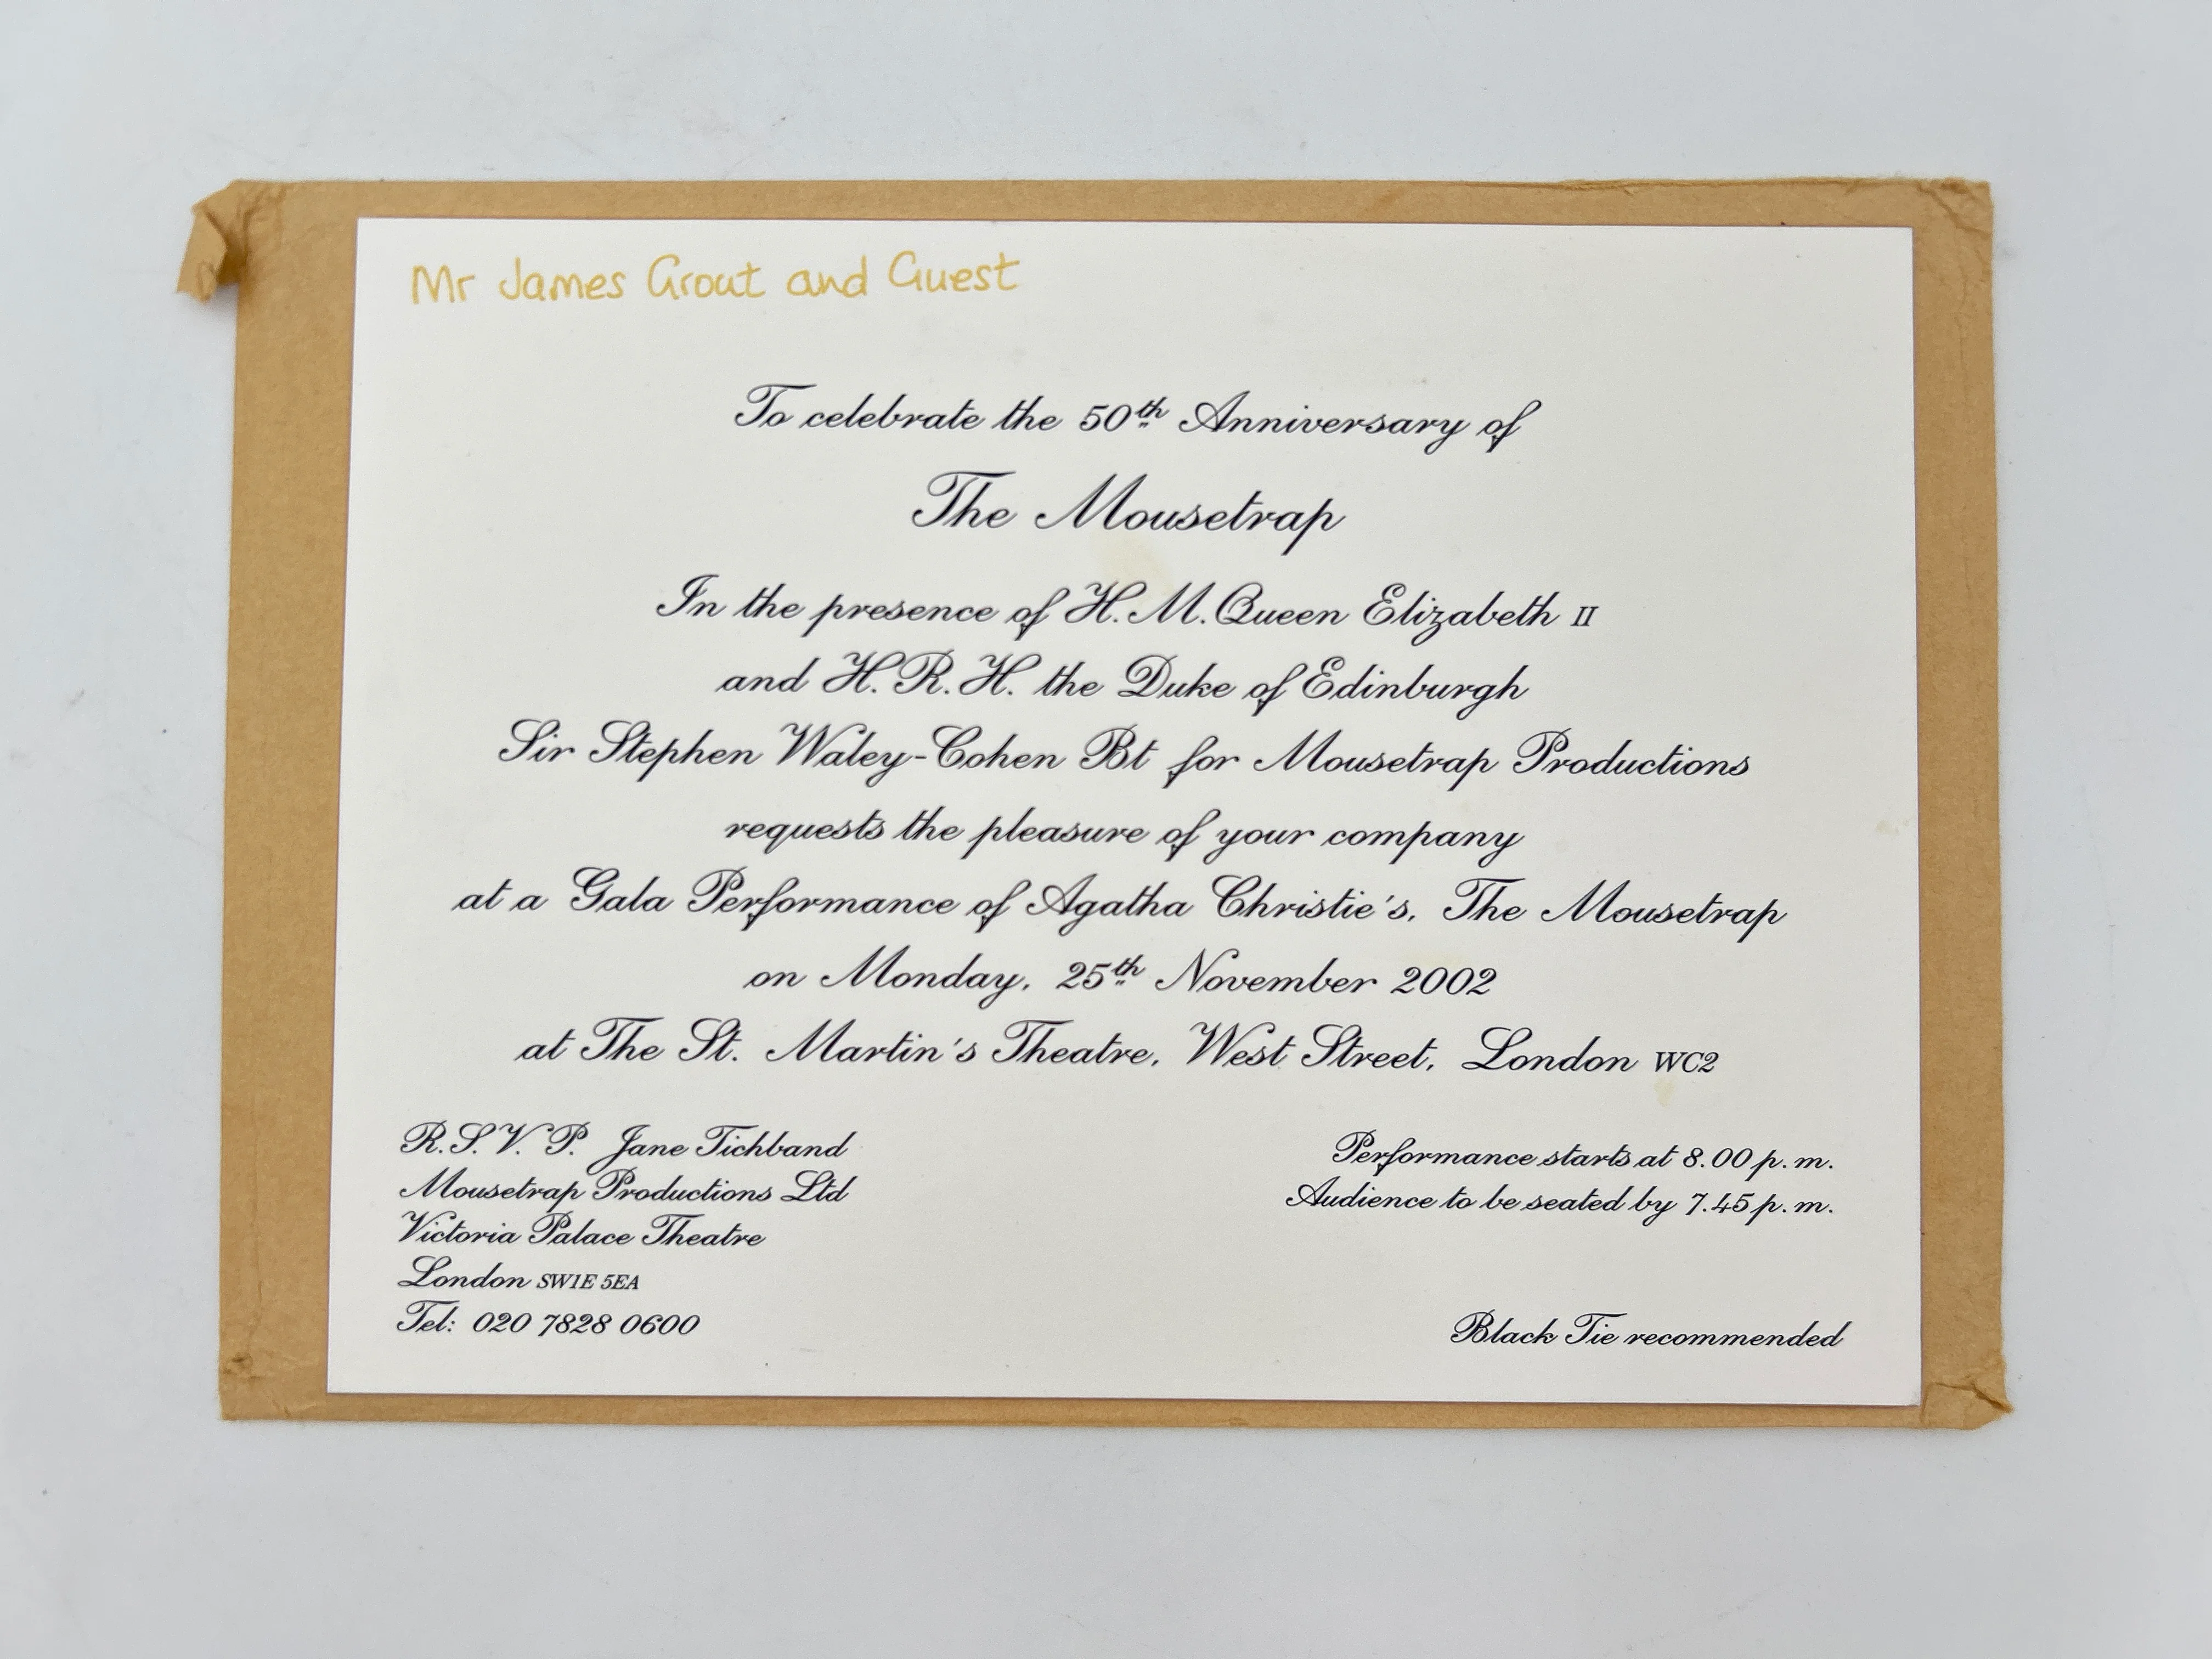 Mr James Grout and Guest
To celebrate the 50th Anniversary of
The Mousetrap
In the presence of H.M.Queen Elizabeth II
and H.R.H. the Duke of Edinburgh
Sir Stephen Waley-Cohen Bt for Mousetrap Productions
requests the pleasure of your company
at a Gala Performance of Agatha Christie's, The Mousetrap
on Monday, 25th November 2002
at The St. Martin's Theatre, West Street, London WC2
R.S.V.P. Jane Tichband
Mousetrap Productions Ltd
Victoria Palace Theatre
London SW1E 5EA
Tel: 020 7828 0600
Performance starts at 8.00 p.m.
Audience to be seated by 7.45 p.m.
Black Tie recommended